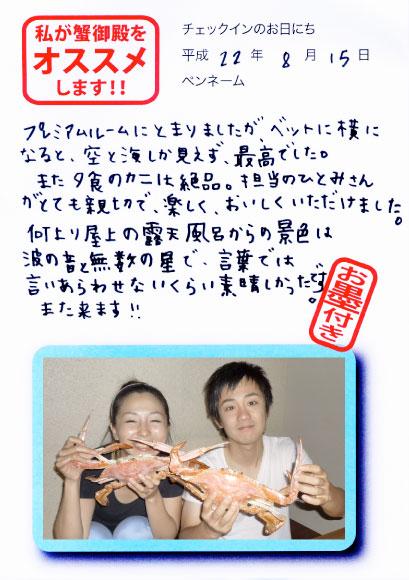 私が蟹御殿を
オススメ
します!!
チェックインのお日にち
平成 22 年 8 月 15 日
ペンネーム
プレミアムルームにとまりましたが、ベットに横に
なると、空と海しか見えず、最高でした。
また夕食のカニは絶品。担当のひとみさん
がとても親切で、楽しく、おいしくいただけました。
何より屋上の露天風呂からの景色は
波の音と無数の星で、言葉では
言いあらわせないくらい素晴しかったです。
また来ます!!
お墨付き